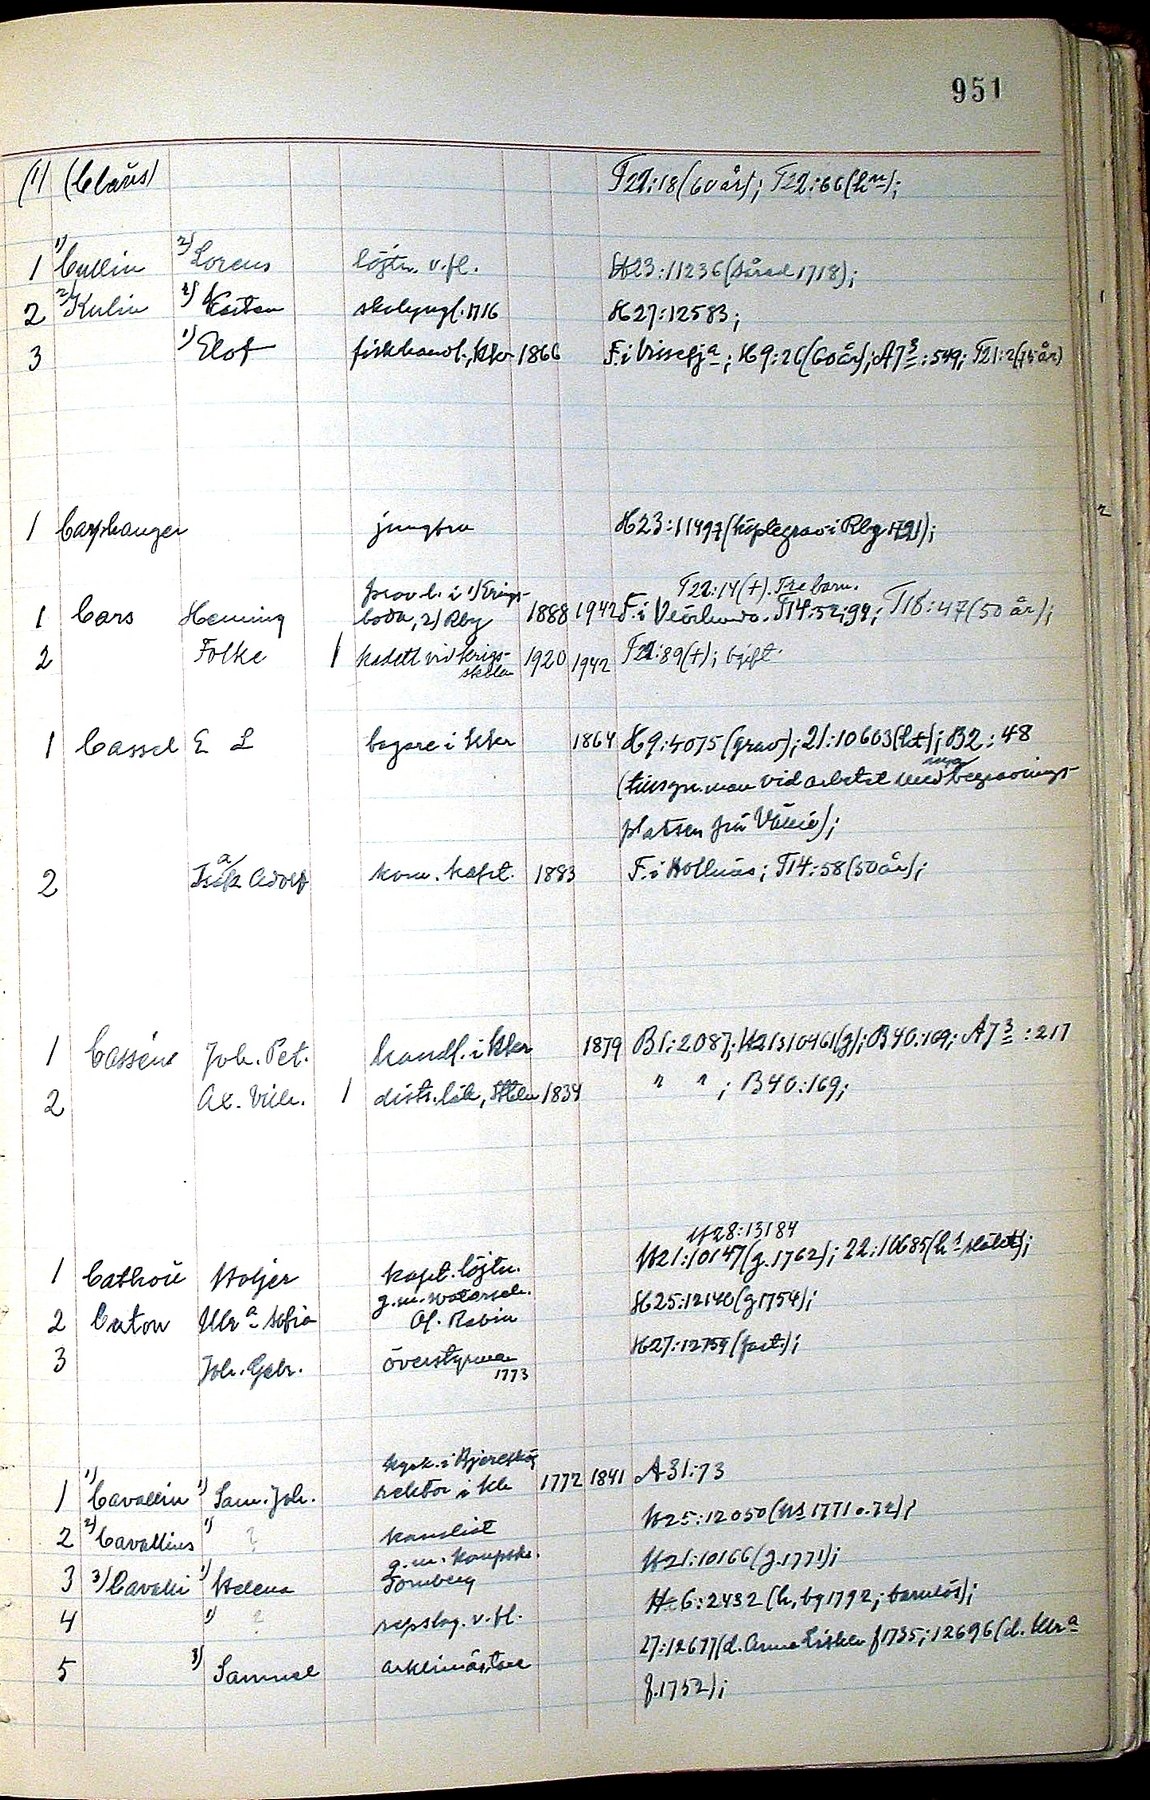 951
(1) (Claus) T22:18 (60 år); T22:66 (hn);
1 1) Cullin 2) Lorens löjtn. v. fl. H23:11236 (sårad 1718);
2 2) Kulin 2) skolyngl. 1716 H27:12583;
3 1) Elof fiskhandl., Kkr 1866 F. i ; H9:26 (60 år); A7 3: 549; T21:2 (75 år)
1 jungfru H23:11497 (köpte grav i Rby 1721);
T22:14 (+). Tre barn.
prov. l. i 1)
1 Cars Heming boda, 2) Rby 1888 1942 F. i T14:52, 94; T18:47 (50 år);
2 Folke 1 kadett vid krigs- 1920 1942 T22:89 (+); bgift.
skolan
1 Cassel E L bagare i Kkr 1864 H9:4075 (grav); 21:10603 (h+); B2:48
(tillsyn. man vid arbetet med nya begravnings-
platsen på Vämö);
2 Isak Adolf kom. kapt. 1883 F. i Hollnäs; T14:58 (50 år);
1 Casséne Joh. Pet. handl. i Kkr 1879 B1:2087; H21:10461 (g); B40:169; A7 3: 217
2 Ax. Vilh. 1 distr. läk, Sthlm 1834 " " ; B40:169;
H28:13184
1 Holjer kapt. löjtn. H21:10147 (g. 1762); 22:10685 (hs släkt);
g. m.
2 Caton Ulr a Sofia Of. Rabin H25:12140 (g 1754);
3 Joh. Gabr. överstyrman H27:12759 (fast.);
1773
kyrk. i
1 1) Cavallin 1) Sam. Joh. rektor i Kkr 1772 1841 A31:73
2 2) Cavallius 1) ? kanslist H25:12050 (hs 1771 o. 72);
g. m.
3 3) Cavalli 1) Helena Törnberg H21:10166 (g. 1771);
4 1) ? repslag. v. fl. H6:2432 (h, bg 1792; barnlös);
5 3) Samuel arklimästare 27:12677 (d. Anna Lisken f 1735; 12696 (d. Ulr a
f. 1752);